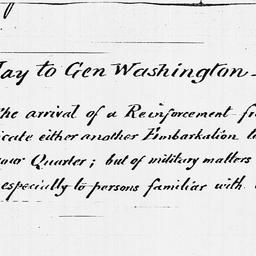 Jay to Gen Washington -
The arrival of a Reinforcement
icate either another Embarkation
your Quarter; but of military matters
especially to persons familiar with